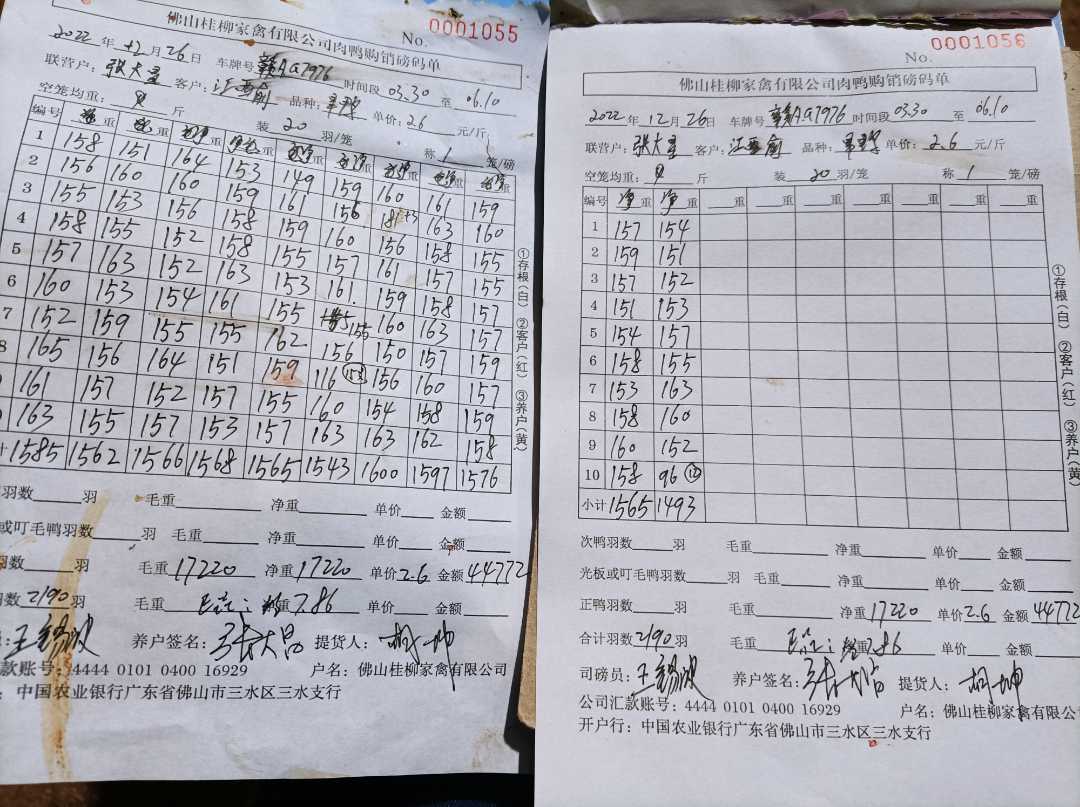 佛山桂柳家禽有限公司肉鸭购销磅码单
No. 0001055
2022年12月26日 车牌号赣AG7976 时间段03.30至06.10
联营户：张大昌 客户： 品种： 单价：2.6元/斤
空笼均重： 斤 装20羽/笼 称1笼/磅
编号 净重 净重 净重 净重 净重 净重 净重 净重 净重
1 158 151 164 153 149 159 160 161 159
2 156 160 160 159 161 156 181 163 160
3 155 153 156 158 159 160 156 158 155
4 158 155 152 158 155 157 161 157 155
5 157 163 152 163 153 161 159 158 157
6 160 153 154 161 155 155 160 163 157
7 152 159 155 155 162 156 150 157 159
8 165 156 164 151 159 116 156 160 157
161 157 152 157 155 160 154 158 159
163 155 157 153 157 163 163 162 158
计 1585 1562 1566 1568 1565 1543 1600 1597 1576
羽数 羽 毛重 净重 单价 金额
或叮毛鸭羽数 羽 毛重 净重 单价 金额
羽数 羽 毛重17220 净重17220 单价2.6 金额44772
羽数2190羽 毛重 净重7.86 单价 金额
养户签名：张大昌 提货人：
汇款账号：4444 0101 0400 16929 户名：佛山桂柳家禽有限公司
：中国农业银行广东省佛山市三水区三水支行
①存根(白) ②客户(红) ③养户(黄)
No. 0001056
佛山桂柳家禽有限公司肉鸭购销磅码单
2022年12月26日 车牌号赣AG7976 时间段03.30至06.10
联营户：张大昌 客户： 品种： 单价：2.6元/斤
空笼均重： 斤 装20羽/笼 称1笼/磅
编号 净重 净重 重 重 重 重 重 重 重
1 157 154
2 159 151
3 157 152
4 151 153
5 154 157
6 158 155
7 153 163
8 158 160
9 160 152
10 158 96 ⑫
小计 1565 1493
次鸭羽数 羽 毛重 净重 单价 金额
光板或叮毛鸭羽数 羽 毛重 净重 单价 金额
正鸭羽数 羽 毛重 净重17220 单价2.6 金额44772
合计羽数2190羽 毛重 净重7.86 单价 金额
司磅员：王锡波 养户签名：张大昌 提货人：
公司汇款账号：4444 0101 0400 16929 户名：佛山桂柳家禽有限公
开户行：中国农业银行广东省佛山市三水区三水支行
①存根(白) ②客户(红) ③养户(黄)